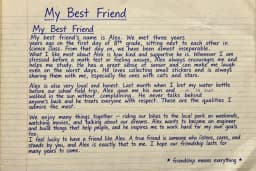 My Best Friend
My Best Friend
My best friend's name is Alex. We met three years
years ago on the first day of 8th grade, sitting next to each other in
science class. From that day on, we have been almost inseparable.
What I like most about Alex is how kind and supportive he is. Whenever I am
stressed before a math test or feeling unsure, Alex always encourages me and
helps me study. He has a great sense of humor and can make me laugh
even on the worst days. He loves collecting small stickers and is always
sharing them with me, especially the ones with cats and stars.
Alex is also very loyal and honest. Last month when I lost my water bottle
before our school field trip, Alex gave me his own and
walked in the sun without complaining. He never talks behind
anyone's back and he treats everyone with respect. These are the qualities I
admire the most.
We enjoy many things together – riding our bikes to the local park on weekends,
watching movies, and talking about our dreams. Alex wants to become an engineer
and build things that help people, and he inspires me to work hard for my own goals
too.
I feel lucky to have a friend like Alex. A true friend is someone who listens, cares, and
stands by you, and Alex is exactly that to me. I hope our friendship lasts for
many years to come.
* friendship means everything *